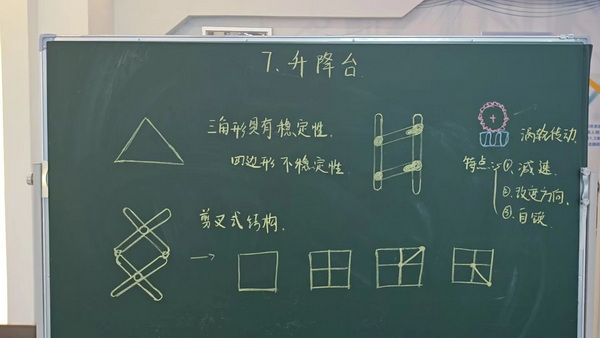 7、升降台
三角形具有稳定性.
四边形不稳定性.
涡轮传动.
特点:①、减速.
②、改变方向、
③、自锁
剪叉式结构.